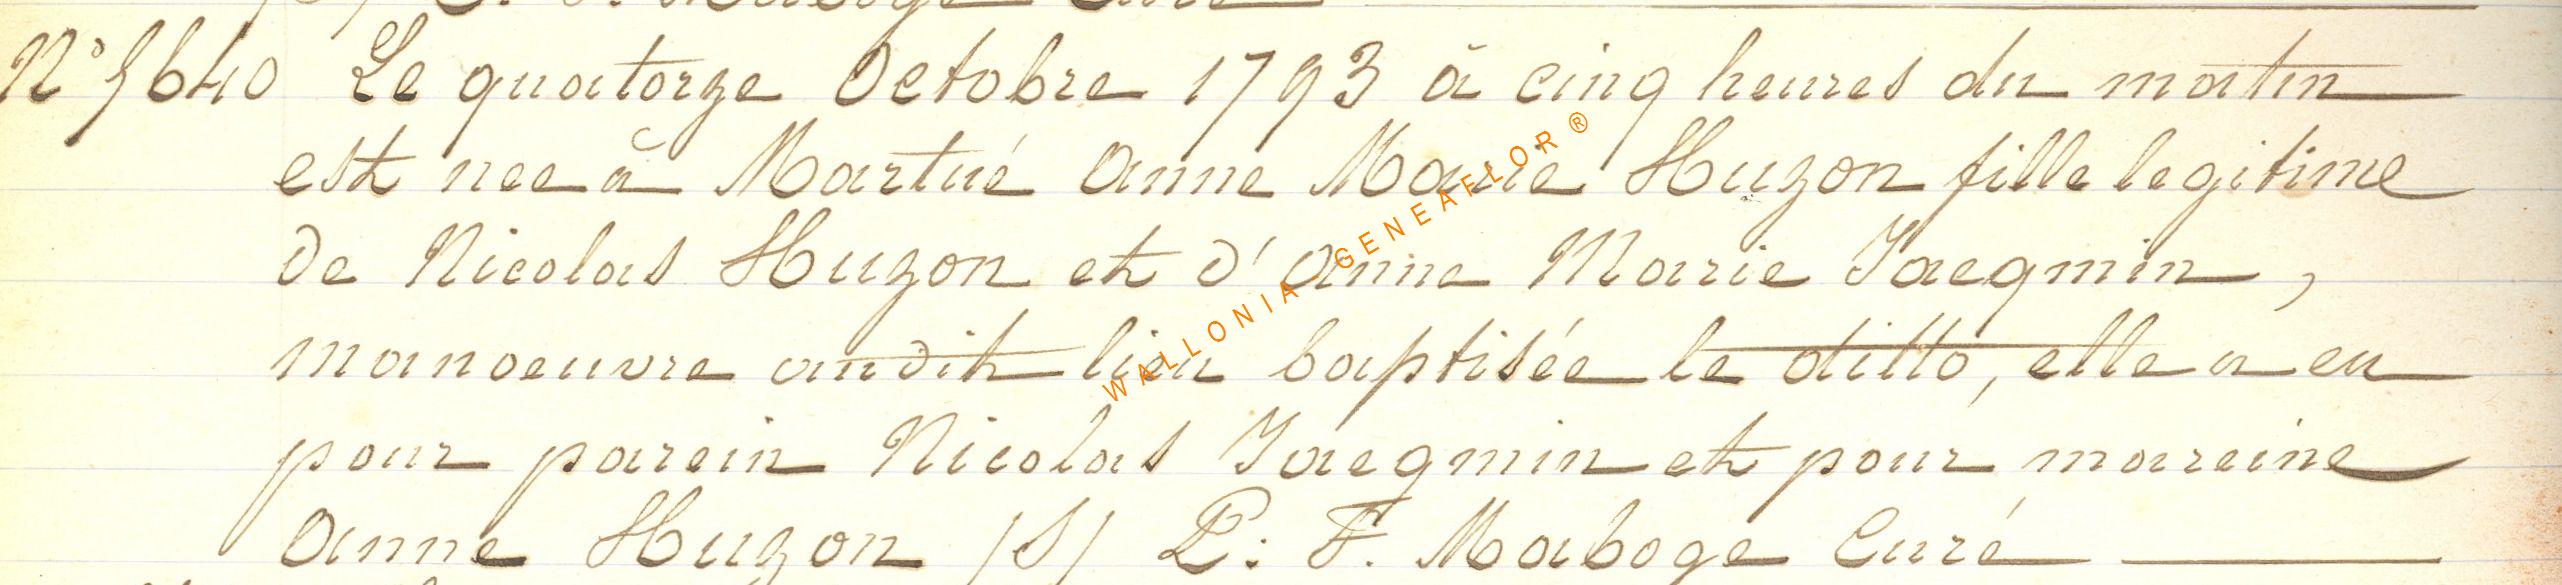 N° 5640 Le quatorze Octobre 1793 à cinq heures du matin
est nee à Martué Anne Marie Huzon fille legitime
de Nicolas Huzon et d'Anne Marie Jaeqmin,
manoeuvre audit lieu baptisée le ditto, elle a eu
pour parein Nicolas Jaeqmin et pour mareine
Anne Huzon /S/ P. F. Maboge Curé
WALLONIA GENEAFLOR ®